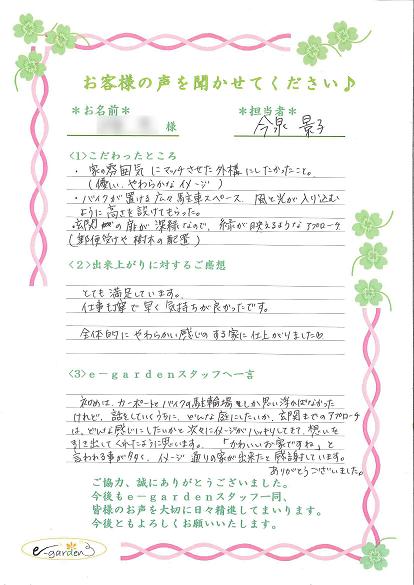 お客様の声を聞かせてください♪
＊お名前＊
＊担当者＊
様
今泉 景子
<1>こだわったところ
・家の雰囲気にマッチさせた外構にしたかったこと。
(優しい、やわらかなイメージ)
・バイクが置ける広々駐車スペース。風と光が入り込む
ように高さを設けてもらった。
・玄関の扉が深緑なので、緑が映えるようなアプローチ
(郵便受けや樹木の配置)
<2>出来上がりに対するご感想
とても満足しています。
仕事も丁寧で早く気持ちが良かったです。
全体的にやわらかい感じのする家に仕上がりました♡
<3>e－gardenスタッフへ一言
初めは、カーポートとバイクの駐輪場をしか思い浮かばなかった
けれど、話をしていくうちに、どんな庭にしたいか、玄関までのアプローチ
は、どんな感じにしたいかと次々にイメージがハッキリしてきて、想いを
引き出してくれたように思います。「かわいいお家ですね」と
言われる事が多く、イメージ通りの家が出来たと感謝しています。
ありがとうございました。
ご協力、誠にありがとうございました。
今後もe－gardenスタッフ一同、
皆様のお声を大切に日々精進してまいります。
今後ともよろしくお願いいたします。
e-garden